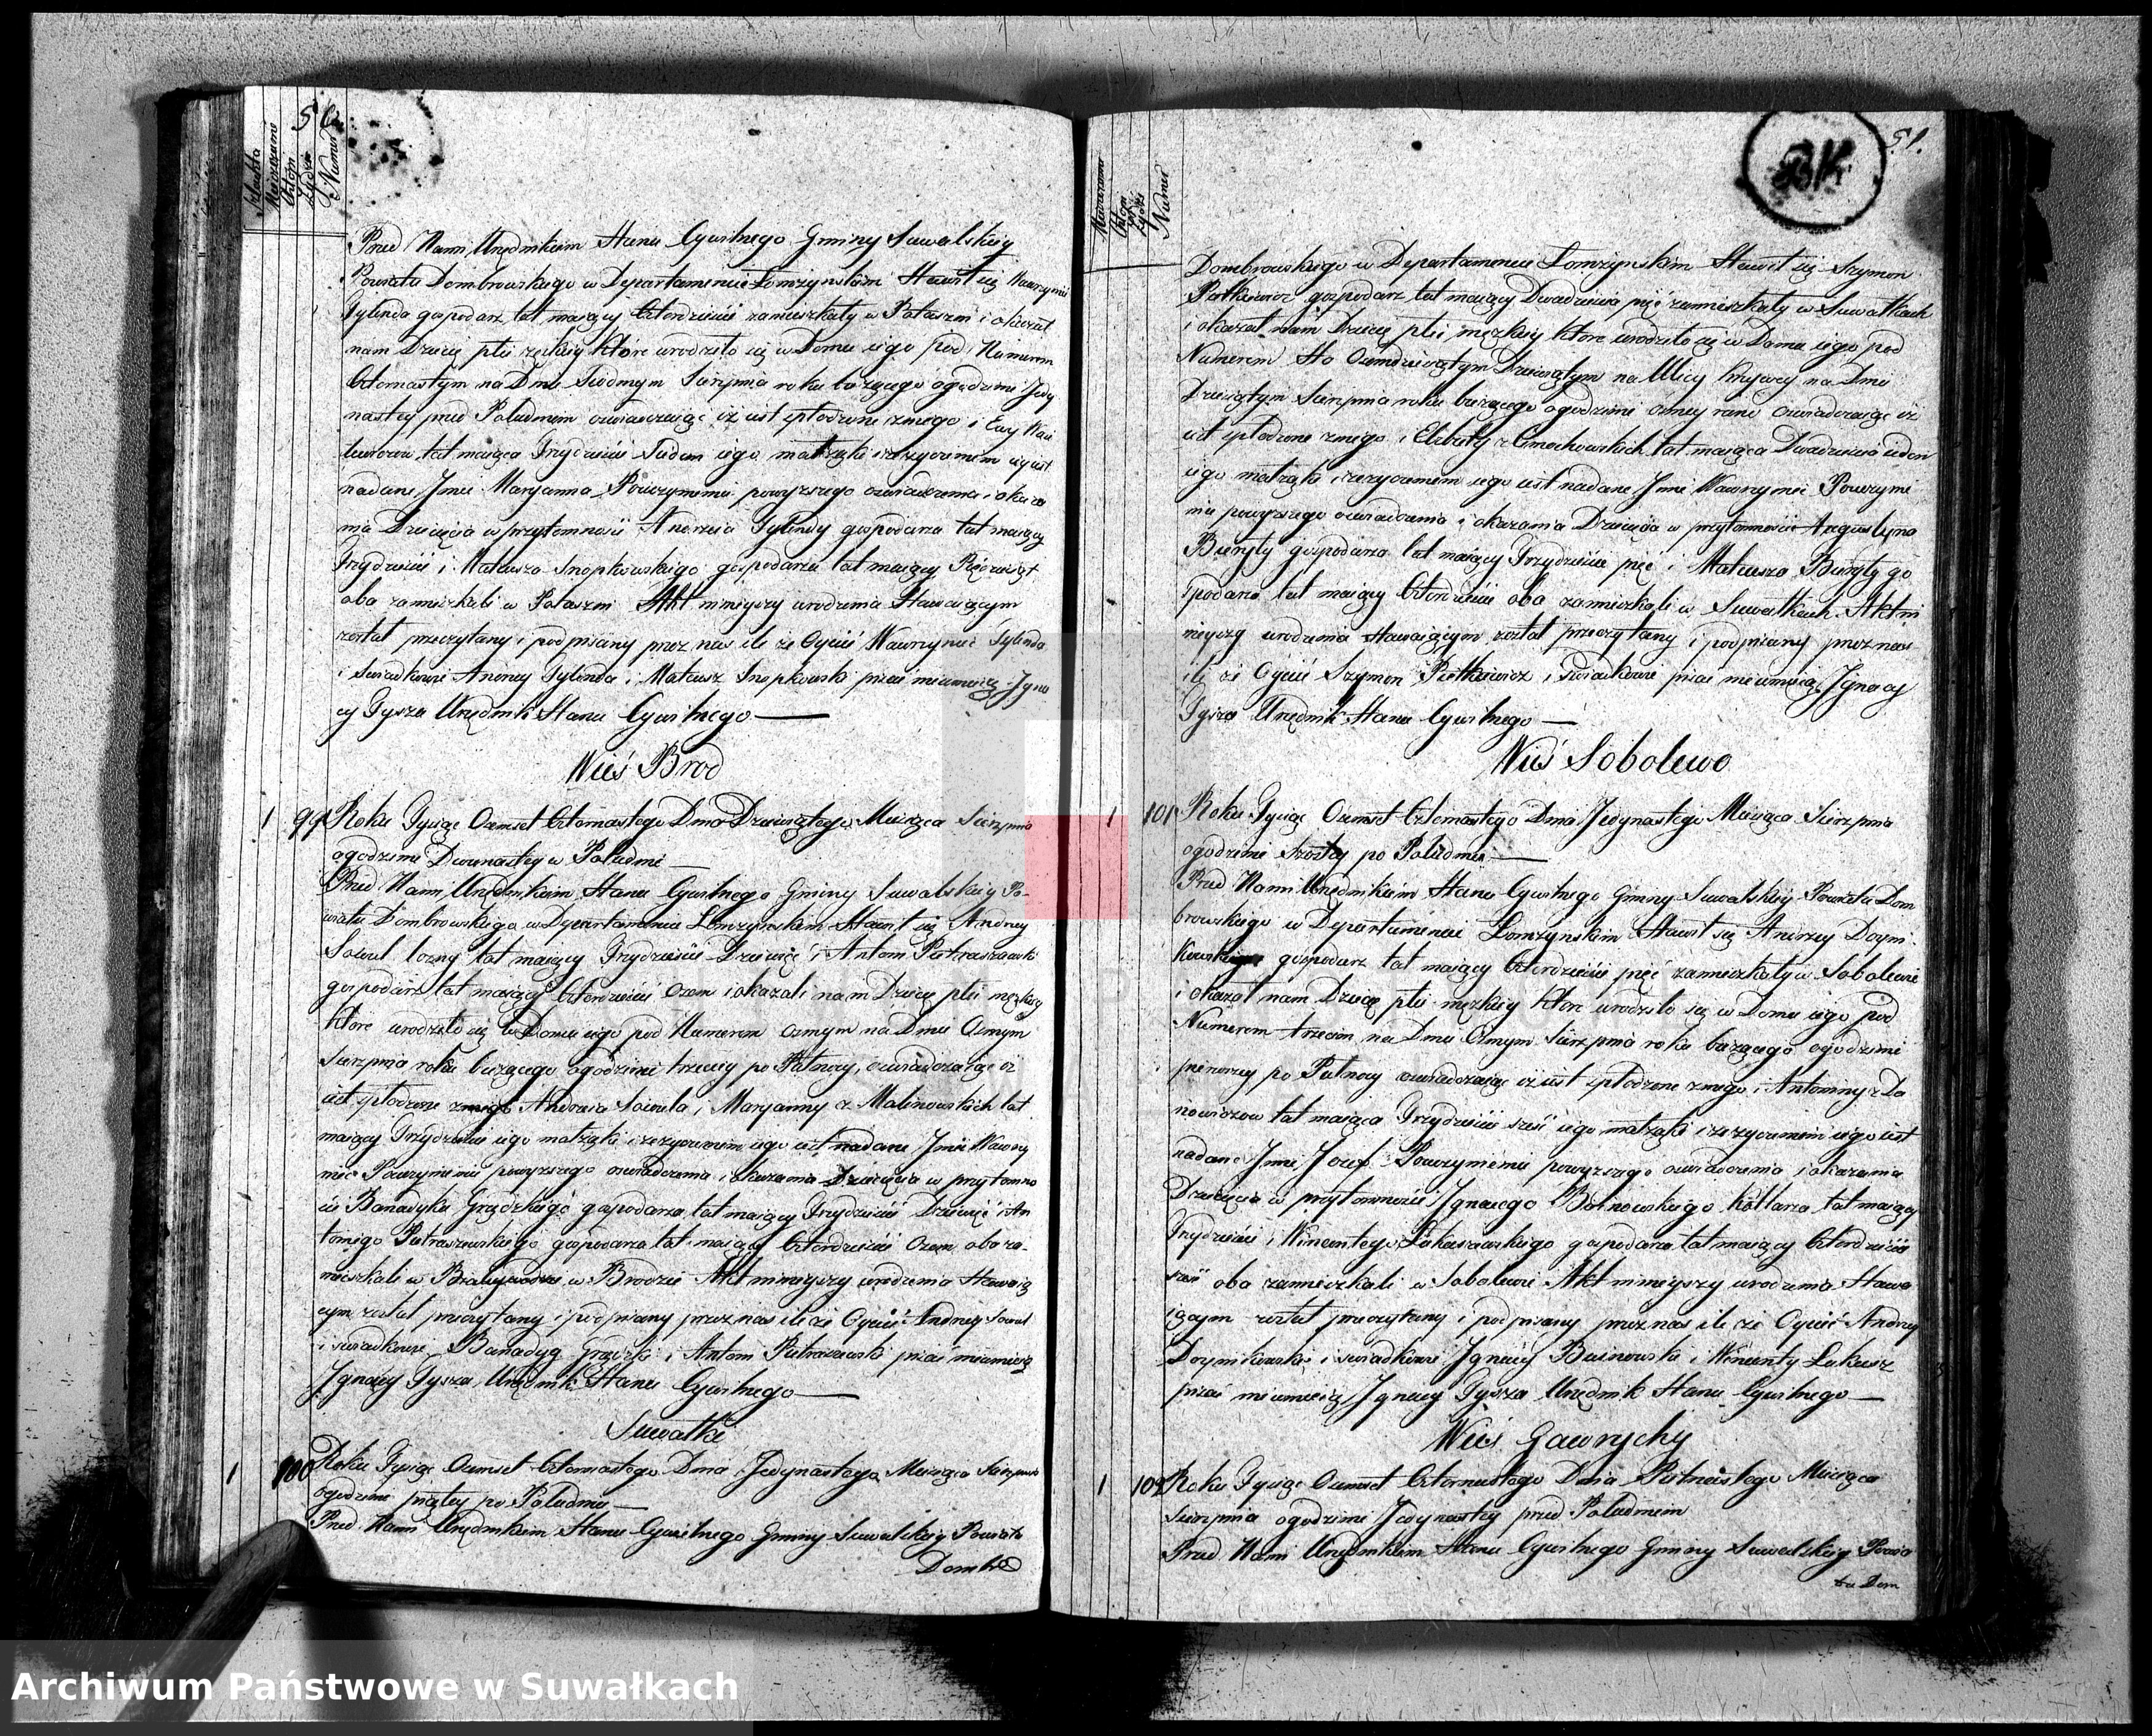 50
Numer
Przed Nami Urzędnikiem Stanu Cywilnego Gminy Suwalskiey
Powiatu Dombrowskiego w Departamencie Łomżynskim Stawił się Wawrzyniec
Tylenda gospodarz lat maiący Czterdzieści zamieszkały w Potaszni i okazał
nam Dziecię płci zęskiey które urodziło się w Domu iego pod Numerem
Czternastym na Dniu Siodmym Sierpnia roku bażącego ogodzinie Jedy
nastey przed Południem oswiadczaiąc iż iest spłodzone zniego i Ewy
lat maiąca Trzydzieści Siedem iego małząki i rzezyczeniem iego iest
nadane Jmie Maryanna Pouczynieniu powyzszego oswiadczenia i okaza
nia Dziecięcia w przytomnosci Andrzeia Tylendy gospodarza lat maiący
Trzydzieści i Mateusza Snopkowskiego gospodarza lat maiący Pięcdziesiąt
oba zamieszkali w Potaszni Akt ninieyszy urodzenia Stawaiącym
został przeczytany i podpisany przez nas ile że Oyciec Wawrzyniec Tylenda
i swiadkowie Andrzey Tylenda i Mateusz Snopkowski pisac nieumieią Jgna
cy Tysza Urzędnik Stanu Cywilnego
Wieś Brod
1 99 Roku Tysiąc Osmset Czternastego Dnia Dziewiątego Miesiąca Sierpnia
ogodzinie Dwunastey w Południe
Przed Nami Urzędnikiem Stanu Cywilnego Gminy Suwalskiey Po-
wiatu Dombrowskiego w Departamencie Łomżynskim Stawił się Andrzey
Sowul lozny lat maiący Trzydzieści Dziewięć i Antoni Pietraszewski
gospodarz lat maiący Czterdzieści Osm i okazali nam Dziecię płci męzkiey
które urodziło się w Domu iego pod Numerem osmym na Dniu Osmym
Sierpnia roku bieżącego ogodzinie trzeciey po Pułnocy, oswiadczaiąc iż
iest spłodzone znięgo Andrzeia Sowula i Maryanny z Malinowskich lat
maiący Trzydzieści iego małząki i rzezyczeniem iego iest nadane Jmie Wawrzy
niec Pouczynieniu powyzszego oswiadczenia i okazania Dziecięcia w przytomno
ści Banadyka Grądzkiego gospodarza lat maiący Trzydzieści Dziewięć i An
toniego Pietraszewskiego gospodarza lat maiący Czterdzieści Osm oba za-
mieszkali w w Brodzie Akt ninieyszy urodzenia Stawaią
cym został przeczytany i podpisany przez nas ile że Oyciec Andrzey Sowul
i swiadkowie Banadyg Grądzki i Antoni Pietraszewski pisać nieumieią
Jgnacy Tysza Urzędnik Stanu Cywilnego
Suwałki
1 100 Roku Tysiąc Osmset Czternastego Dnia Jedynastego Miesiąca Sierpnia
ogodzinie piątey po Południu
Przed Nami Urzędnikiem Stanu Cywilnego Gminy Suwalskiey Powiatu
Dombro
51.
BK
Numer
Dombrowskiego w Departamencie Łomżynskim Stawił się Szymon
Pietkiewicz gospodarz lat maiący Dwadzieścia pięć zamieszkały w Suwałkach
i okazał nam Dziecię płci męzkiey które urodziło się w Domu iego pod
Numerem Sto Osmdziesiątym Dziewiątym na Ulicy na Dniu
Dziesiątym Sierpnia roku bieżącego ogodzinie osmey rano oswiadczaiąc iż
iest spłodzone znięgo i Elzbiety z Cimochowskich lat maiąca Dwadzieścia ieden
iego małząki i rzezyczeniem iego iest nadane Jmie Wawrzyniec Pouczynie
niu powyzszego oswiadczenia i okazania Dziecięcia w przytomności Augustyna
Bieryły gospodarza lat maiący Trzydzieści pięć i Mateusza Bieryły go
spodarza lat maiący Czterdzieści oba zamieszkali w Suwałkach. Akt ni
nieyszy urodzenia stawaiącym został przeczytany i podpisany przez nas
ile że Oyciec Szymon Pietkiewicz i Swiadkowie pisac nieumieią Jgnacy
Tysza Urzędnik Stanu Cywilnego
Wieś Sobolewo
1 101 Roku Tysiąc Osmset Czternastego Dnia Jedynastego Miesiąca Sierpnia
ogodzinie szostey po Południu
Przed Nami Urzędnikiem Stanu Cywilnego Gminy Suwalskiey Powiatu Dom
browskiego w Departamencie Łomżynskim Stawił się Andrzey Doymi
kowski gospodarz lat maiący Czterdzieści pięć zamieszkały w Sobolewie
i okazał nam Dziecię płci męzkiey które urodziło się w Domu iego pod
Numerem trzecim na Dniu Osmym Sierpnia roku bażącego ogodzinie
pierwszey po Pułnocy oswiadczaiąc iż iest spłodzone znięgo i Antoniny z Da
nowiczow lat maiąca Trzydzieści sześć iego małząki i rzezyczeniem iego iest
nadane Jmie Jozef Pouczynieniu powyzszego oswiadczenia i okazania
Dziecięcia w przytomności Jgnacego Buinowskiego kotlarza lat maiący
Trzydzieści i Wincentego Łukaszewskiego gospodarza lat maiący Czterdzieści
sześć oba zamieszkali w Sobolewie Akt ninieyszy urodzenia Stawa
iącym został przeczytany i podpisany przez nas ile że Oyciec Andrzey
Doymikowski i swiadkowie Jgnacy Buinowski i Wincenty Łukasz
pisac nieumieią Jgnacy Tysza Urzędnik Stanu Cywilnego
Wieś Gawrychy
1 102 Roku Tysiąc Osmset Czternastego Dnia Pietnastego Miesiąca
Sierpnia ogodzinie Jedynastey przed Południem
Przed Nami Urzędnikiem Stanu Cywilnego Gminy Suwalskiey Powia
tu Dom
Archiwum Państwowe w Suwałkach